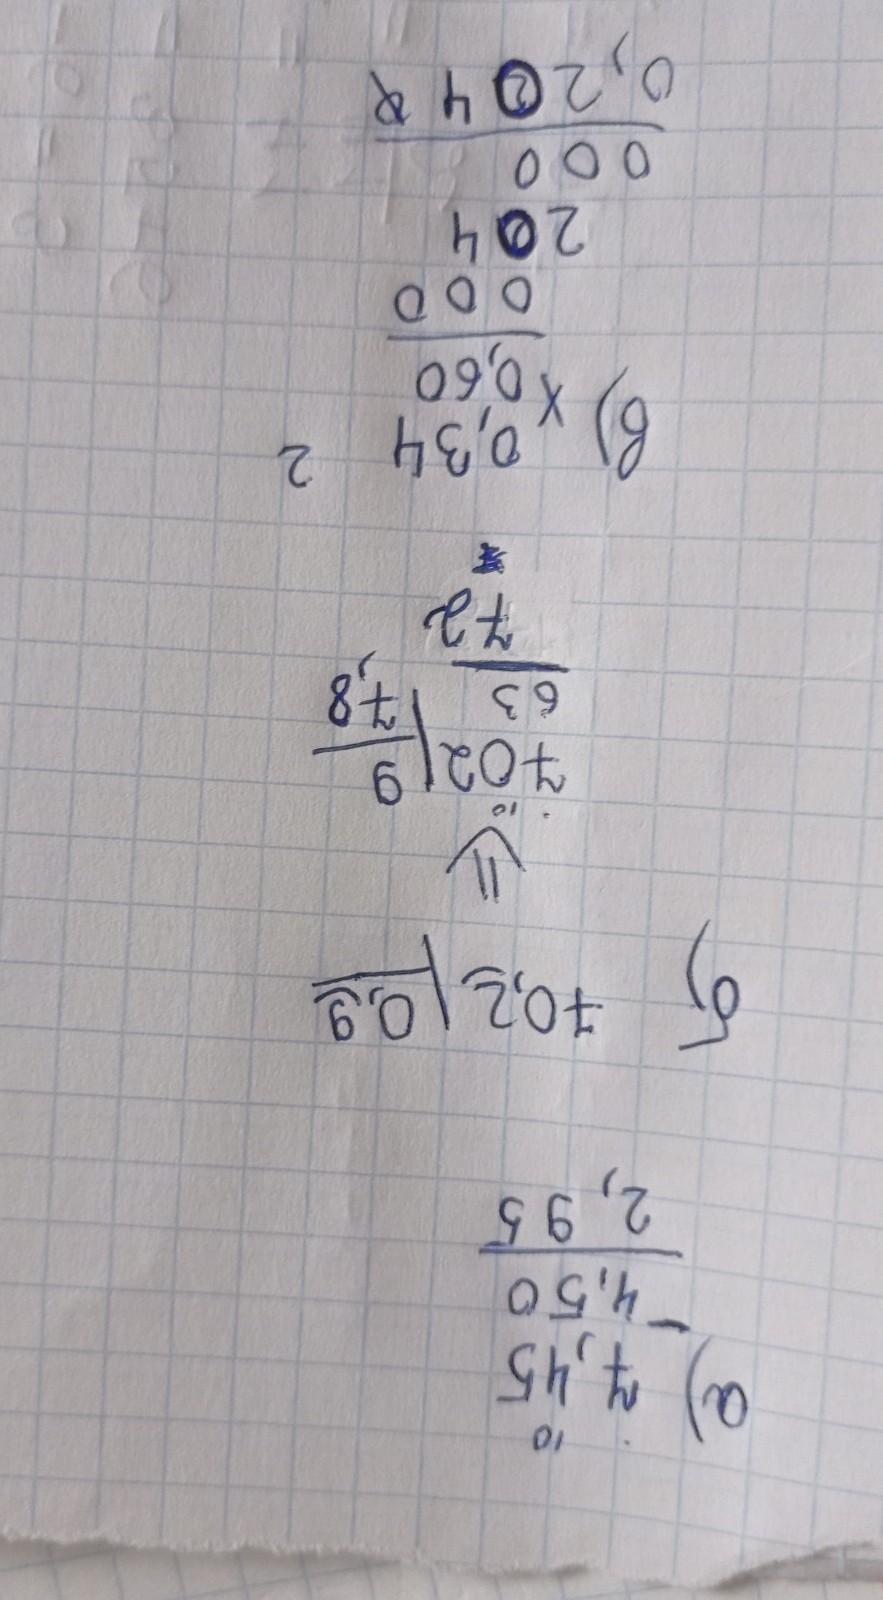 10
а) 7,45
- 4,50
2,95
б) 70,2 | 0,9
10
702 | 9
63 7,8
72
в) 0,34 2
× 0,60
000
204
000
0,204